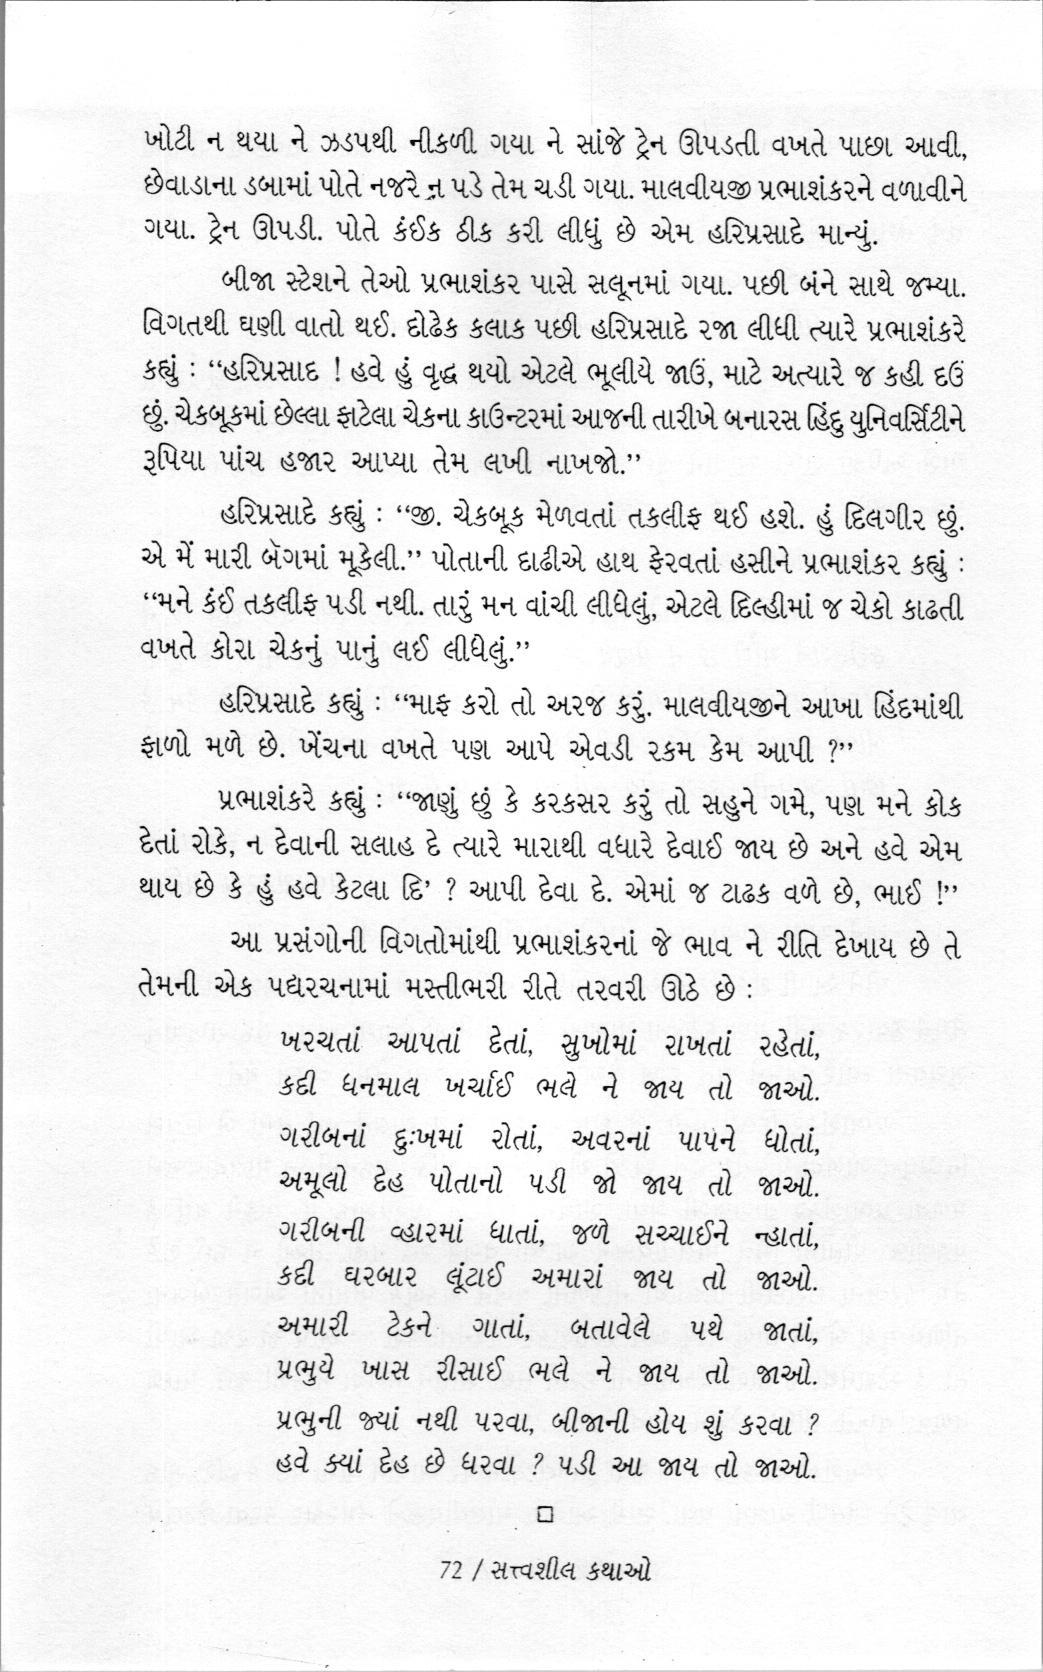 ખોટી ન થયા ને ઝડપથી નીકળી ગયા ને સાંજે ટ્રેન ઊપડતી વખતે પાછા આવી,
છેવાડાના ડબામાં પોતે નજરે ન પડે તેમ ચડી ગયા. માલવીયજી પ્રભાશંકરને વળાવીને
ગયા. ટ્રેન ઊપડી. પોતે કંઈક ઠીક કરી લીધું છે એમ હરિપ્રસાદે માન્યું.
બીજા સ્ટેશને તેઓ પ્રભાશંકર પાસે સલૂનમાં ગયા. પછી બંને સાથે જમ્યા.
વિગતથી ઘણી વાતો થઈ. દોઢેક કલાક પછી હરિપ્રસાદે રજા લીધી ત્યારે પ્રભાશંકરે
કહ્યું : “હરિપ્રસાદ ! હવે હું વૃદ્ધ થયો એટલે ભૂલીયે જાઉં, માટે અત્યારે જ કહી દઉં
છું. ચેકબૂકમાં છેલ્લા ફાટેલા ચેકના કાઉન્ટરમાં આજની તારીખે બનારસ હિંદુ યુનિવર્સિટીને
રૂપિયા પાંચ હજાર આપ્યા તેમ લખી નાખજો.”
હરિપ્રસાદે કહ્યું : “જી. ચેકબૂક મેળવતાં તકલીફ થઈ હશે. હું દિલગીર છું.
એ મેં મારી બૅગમાં મૂકેલી.” પોતાની દાઢીએ હાથ ફેરવતાં હસીને પ્રભાશંકર કહ્યું :
“મને કંઈ તકલીફ પડી નથી. તારું મન વાંચી લીધેલું, એટલે દિલ્હીમાં જ ચેકો કાઢતી
વખતે કોરા ચેકનું પાનું લઈ લીધેલું.”
હરિપ્રસાદે કહ્યું : “માફ કરો તો અરજ કરું. માલવીયજીને આખા હિંદમાંથી
ફાળો મળે છે. ખેંચના વખતે પણ આપે એવડી રકમ કેમ આપી ?”
પ્રભાશંકરે કહ્યું : “જાણું છું કે કરકસર કરું તો સહુને ગમે, પણ મને કોક
દેતાં રોકે, ન દેવાની સલાહ દે ત્યારે મારાથી વધારે દેવાઈ જાય છે અને હવે એમ
થાય છે કે હું હવે કેટલા દિ’ ? આપી દેવા દે. એમાં જ ટાઢક વળે છે, ભાઈ !”
આ પ્રસંગોની વિગતોમાંથી પ્રભાશંકરનાં જે ભાવ ને રીતિ દેખાય છે તે
તેમની એક પદ્યરચનામાં મસ્તીભરી રીતે તરવરી ઊઠે છે :
ખરચતાં આપતાં દેતાં, સુખોમાં રાખતાં રહેતાં,
કદી ધનમાલ ખર્ચાઈ ભલે ને જાય તો જાઓ.
ગરીબનાં દુઃખમાં રોતાં, અવરનાં પાપને ધોતાં,
અમૂલો દેહ પોતાનો પડી જો જાય તો જાઓ.
ગરીબની વ્હારમાં ધાતાં, જળે સચ્ચાઈને ન્હાતાં,
કદી ઘરબાર લૂંટાઈ અમારાં જાય તો જાઓ.
અમારી ટેકને ગાતાં, બતાવેલે પથે જાતાં,
પ્રભુયે ખાસ રીસાઈ ભલે ને જાય તો જાઓ.
પ્રભુની જ્યાં નથી પરવા, બીજાની હોય શું કરવા ?
હવે ક્યાં દેહ છે ધરવા ? પડી આ જાય તો જાઓ.
72 / સત્ત્વશીલ કથાઓ